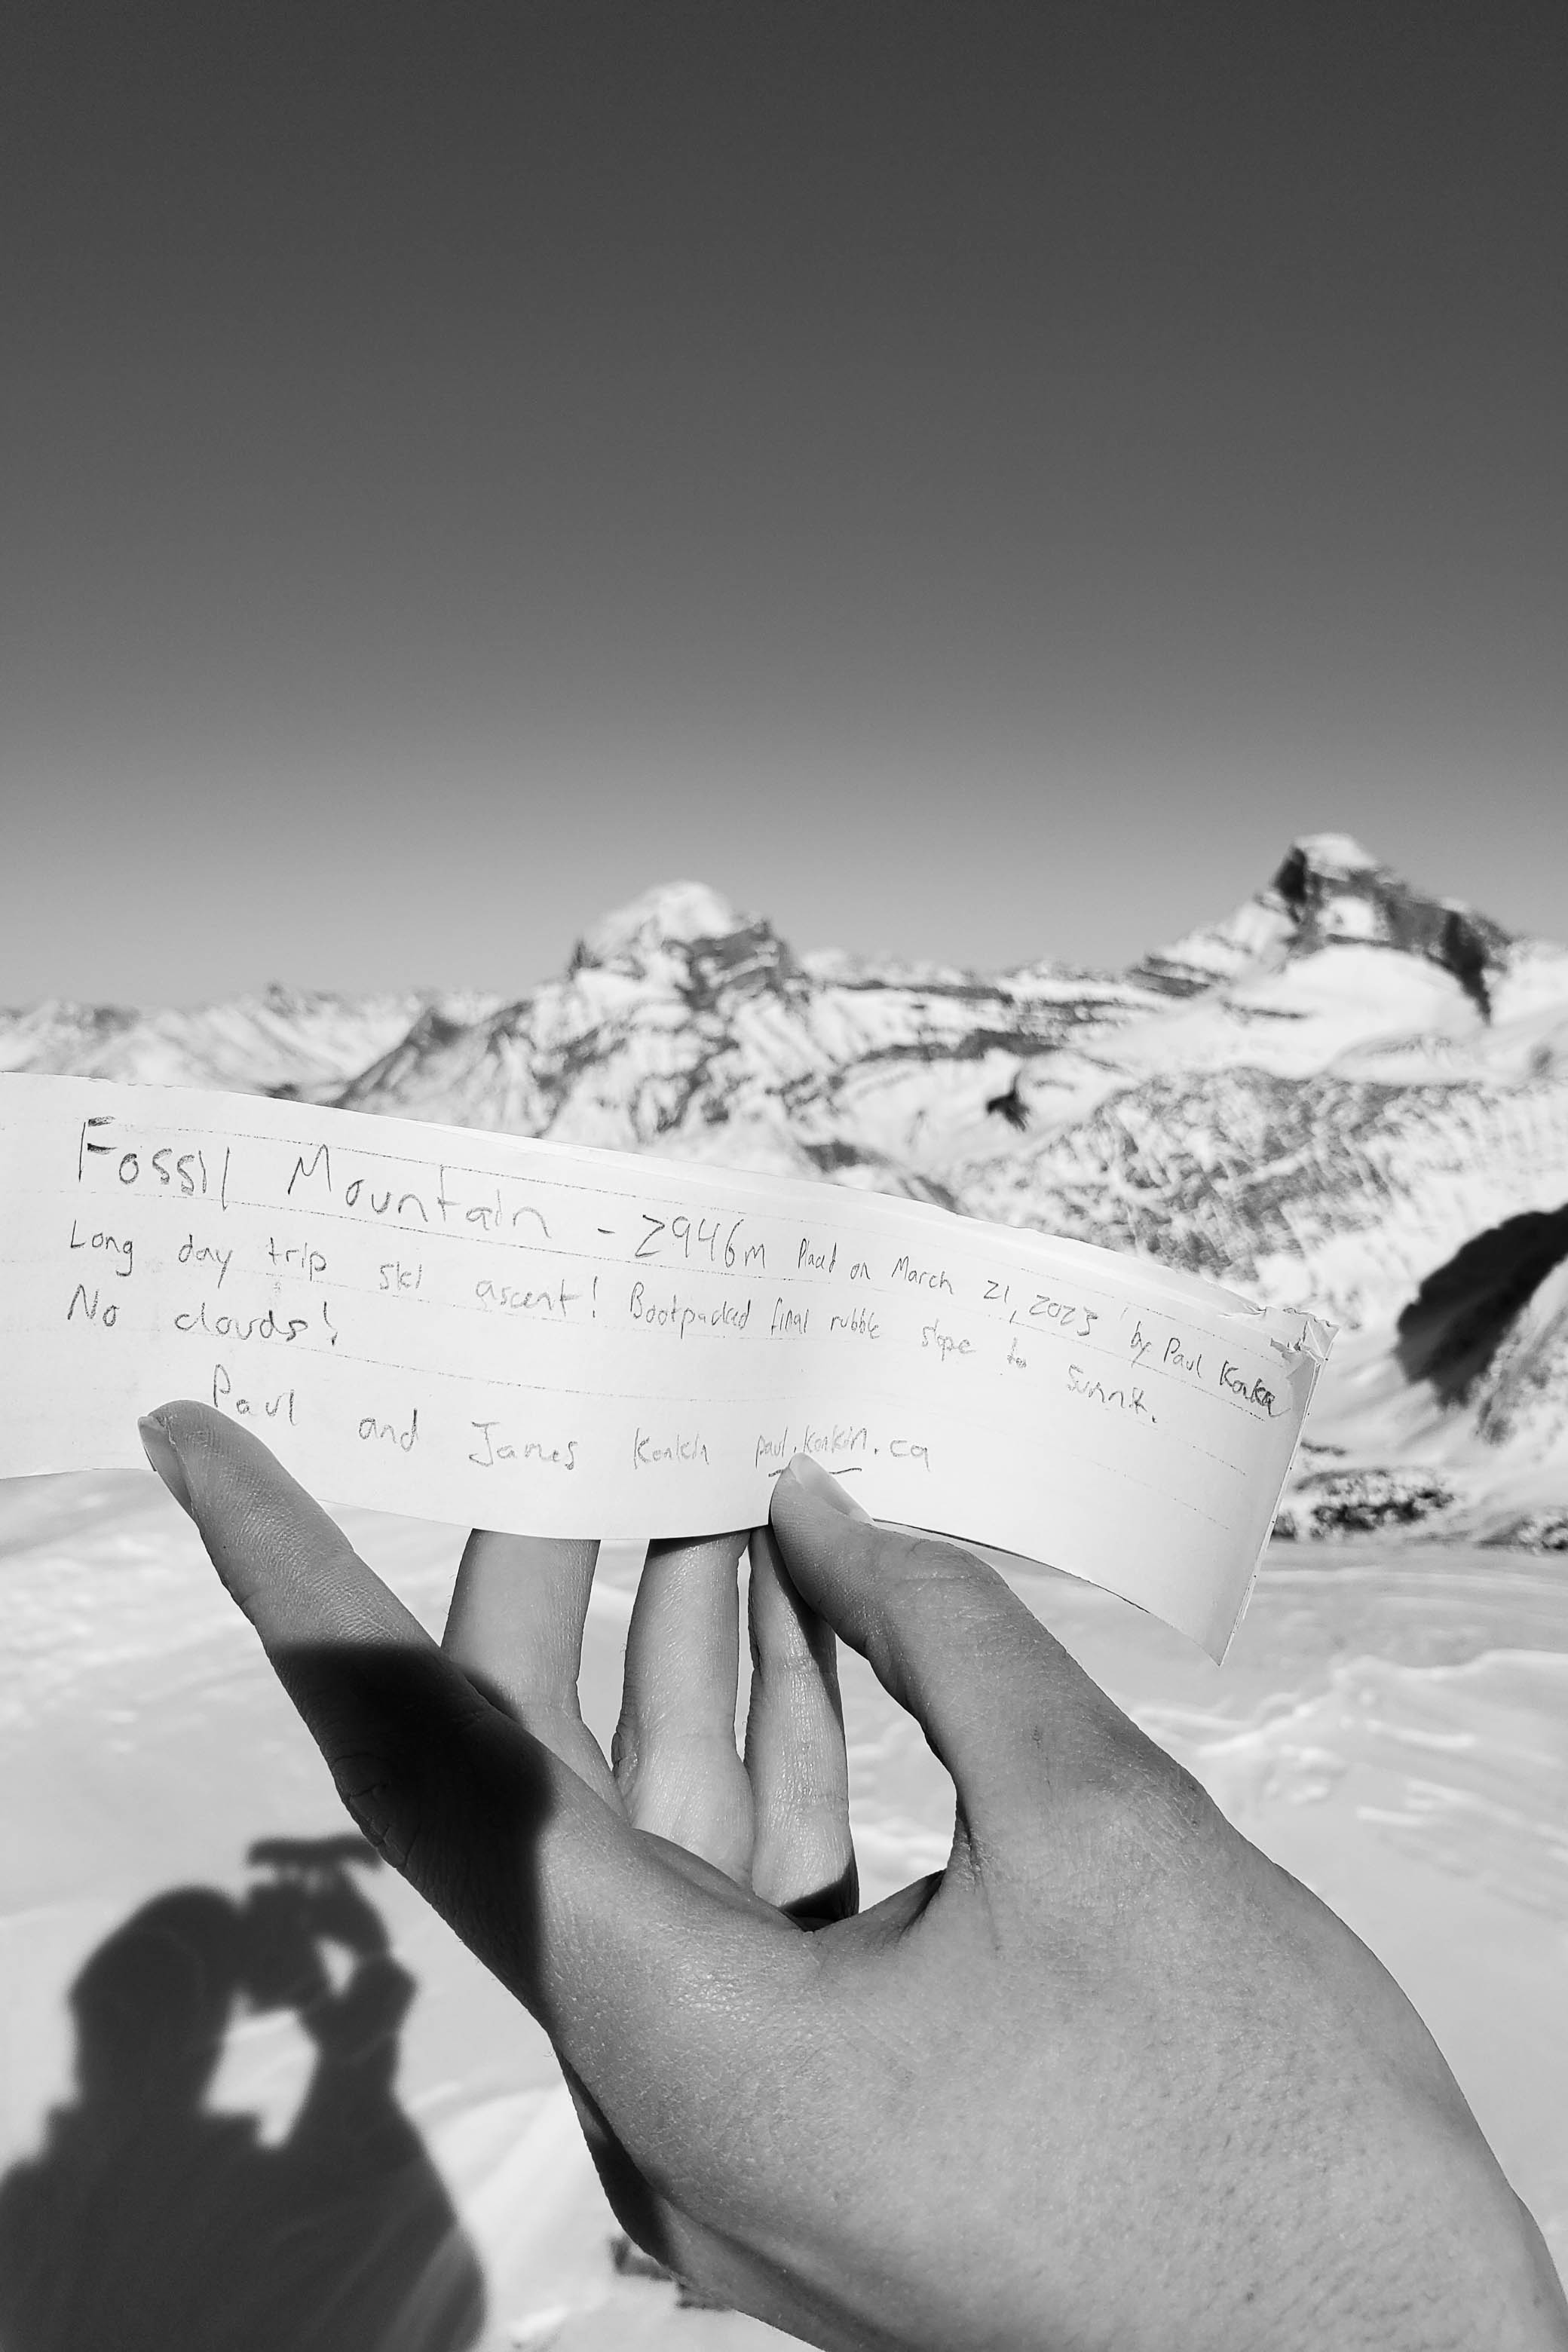 Fossil Mountain - 2946m Placed on March 21, 2023 by Paul Konkin
Long day trip ski ascent! Bootpacked final rubble slope to Summit.
No clouds!
Paul and James Konkin paul.konkin.ca